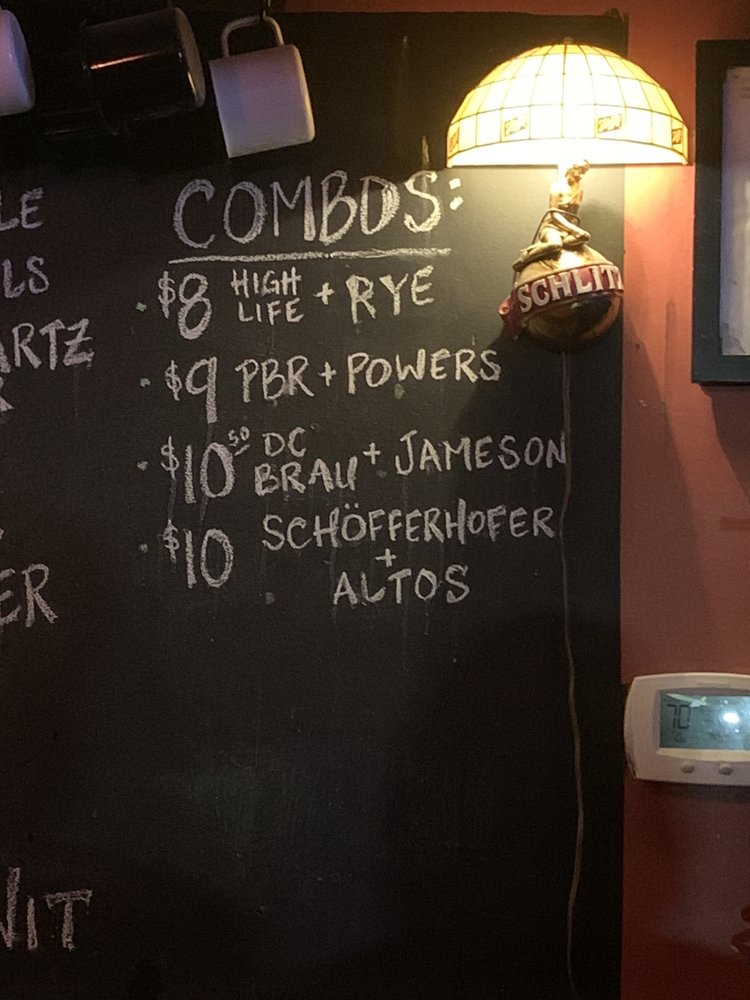 COMBOS:
$8 HIGH LIFE + RYE
$9 PBR + POWERS
$10.50 DC BRAU + JAMESON
$10 SCHÖFFERHOFER
+
ALTOS
SCHLITZ
70